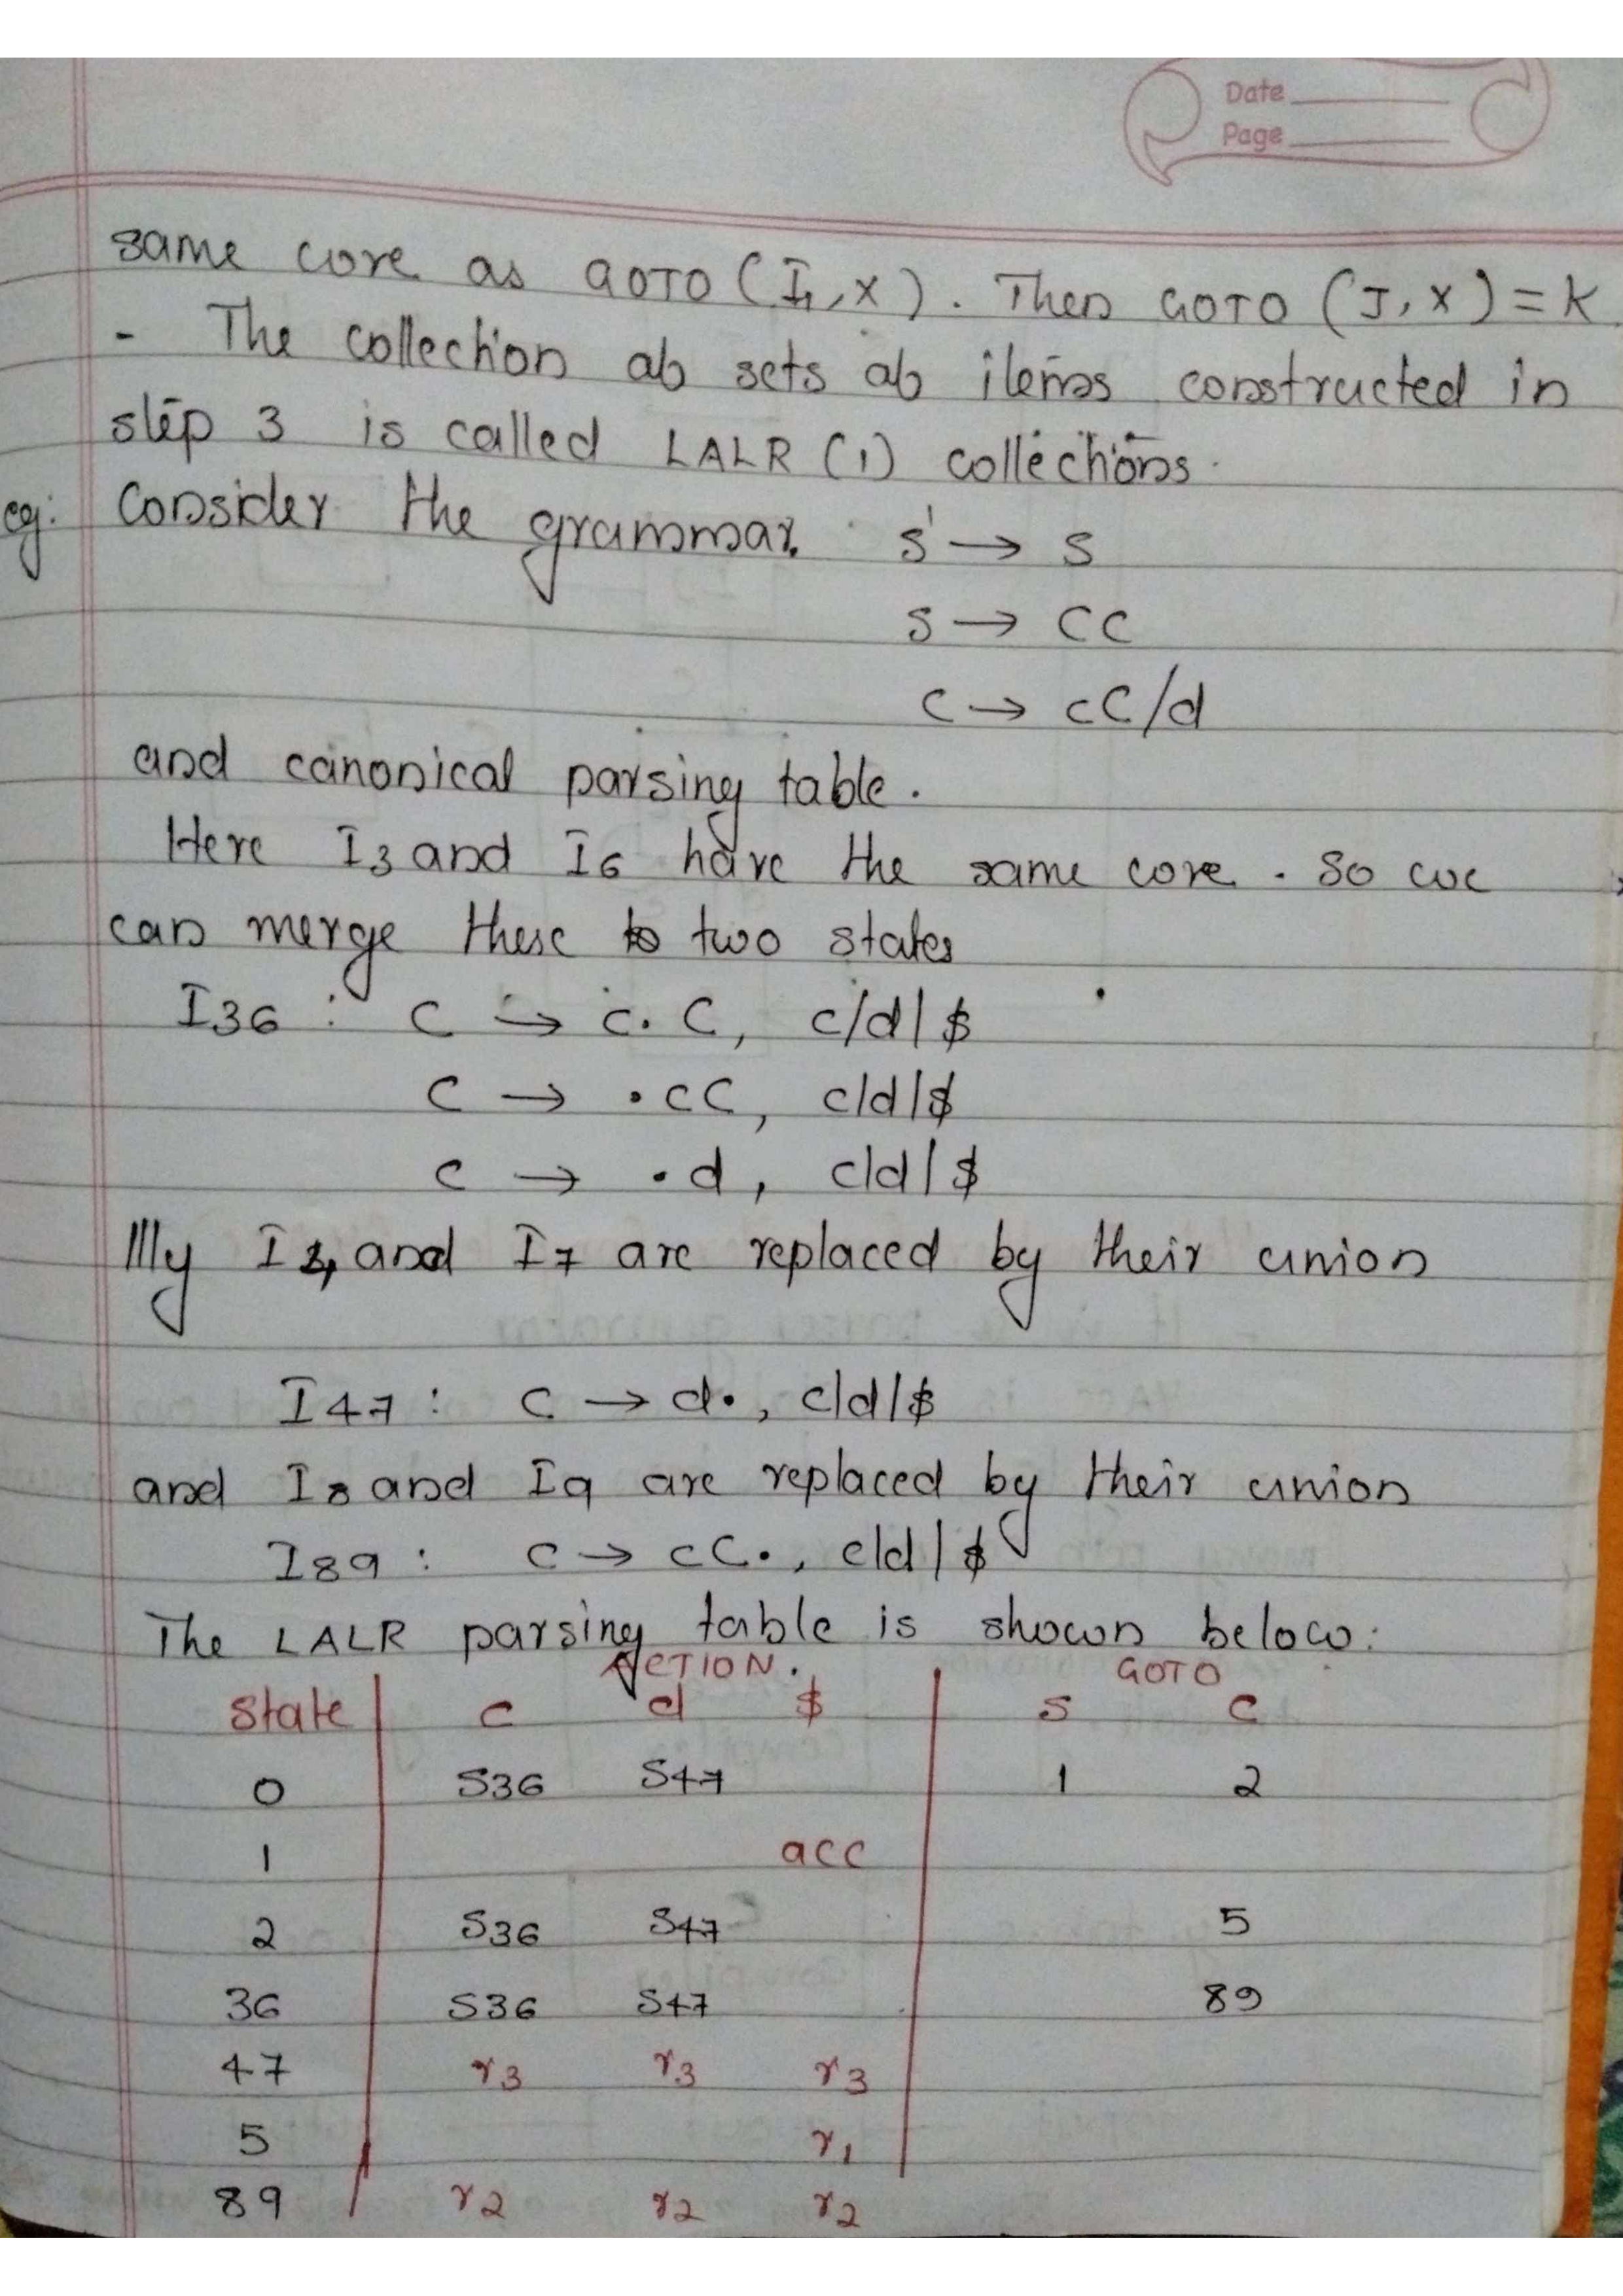 Date
Page
same core as GOTO (I1, X). Then GOTO (J, X) = K.
- The collection of sets of items constructed in
step 3 is called LALR (1) collections.
eg: Consider the grammar. S' → S
S → CC
C → cC/d
and canonical parsing table.
Here I3 and I6 have the same core. So we
can merge these to two states
I36 : C → c.C, c/d|$
C → .cC, c|d|$
C → .d, c|d|$
Illy I4 and I7 are replaced by their union
I47 : C → d., c|d|$
and I8 and I9 are replaced by their union
I89 : C → cC., c|d|$
The LALR parsing table is shown below:
ACTION. GOTO
State c d $ S C
0 S36 S47 1 2
1 acc
2 S36 S47 5
36 S36 S47 89
47 r3 r3 r3
5 r1
89 r2 r2 r2